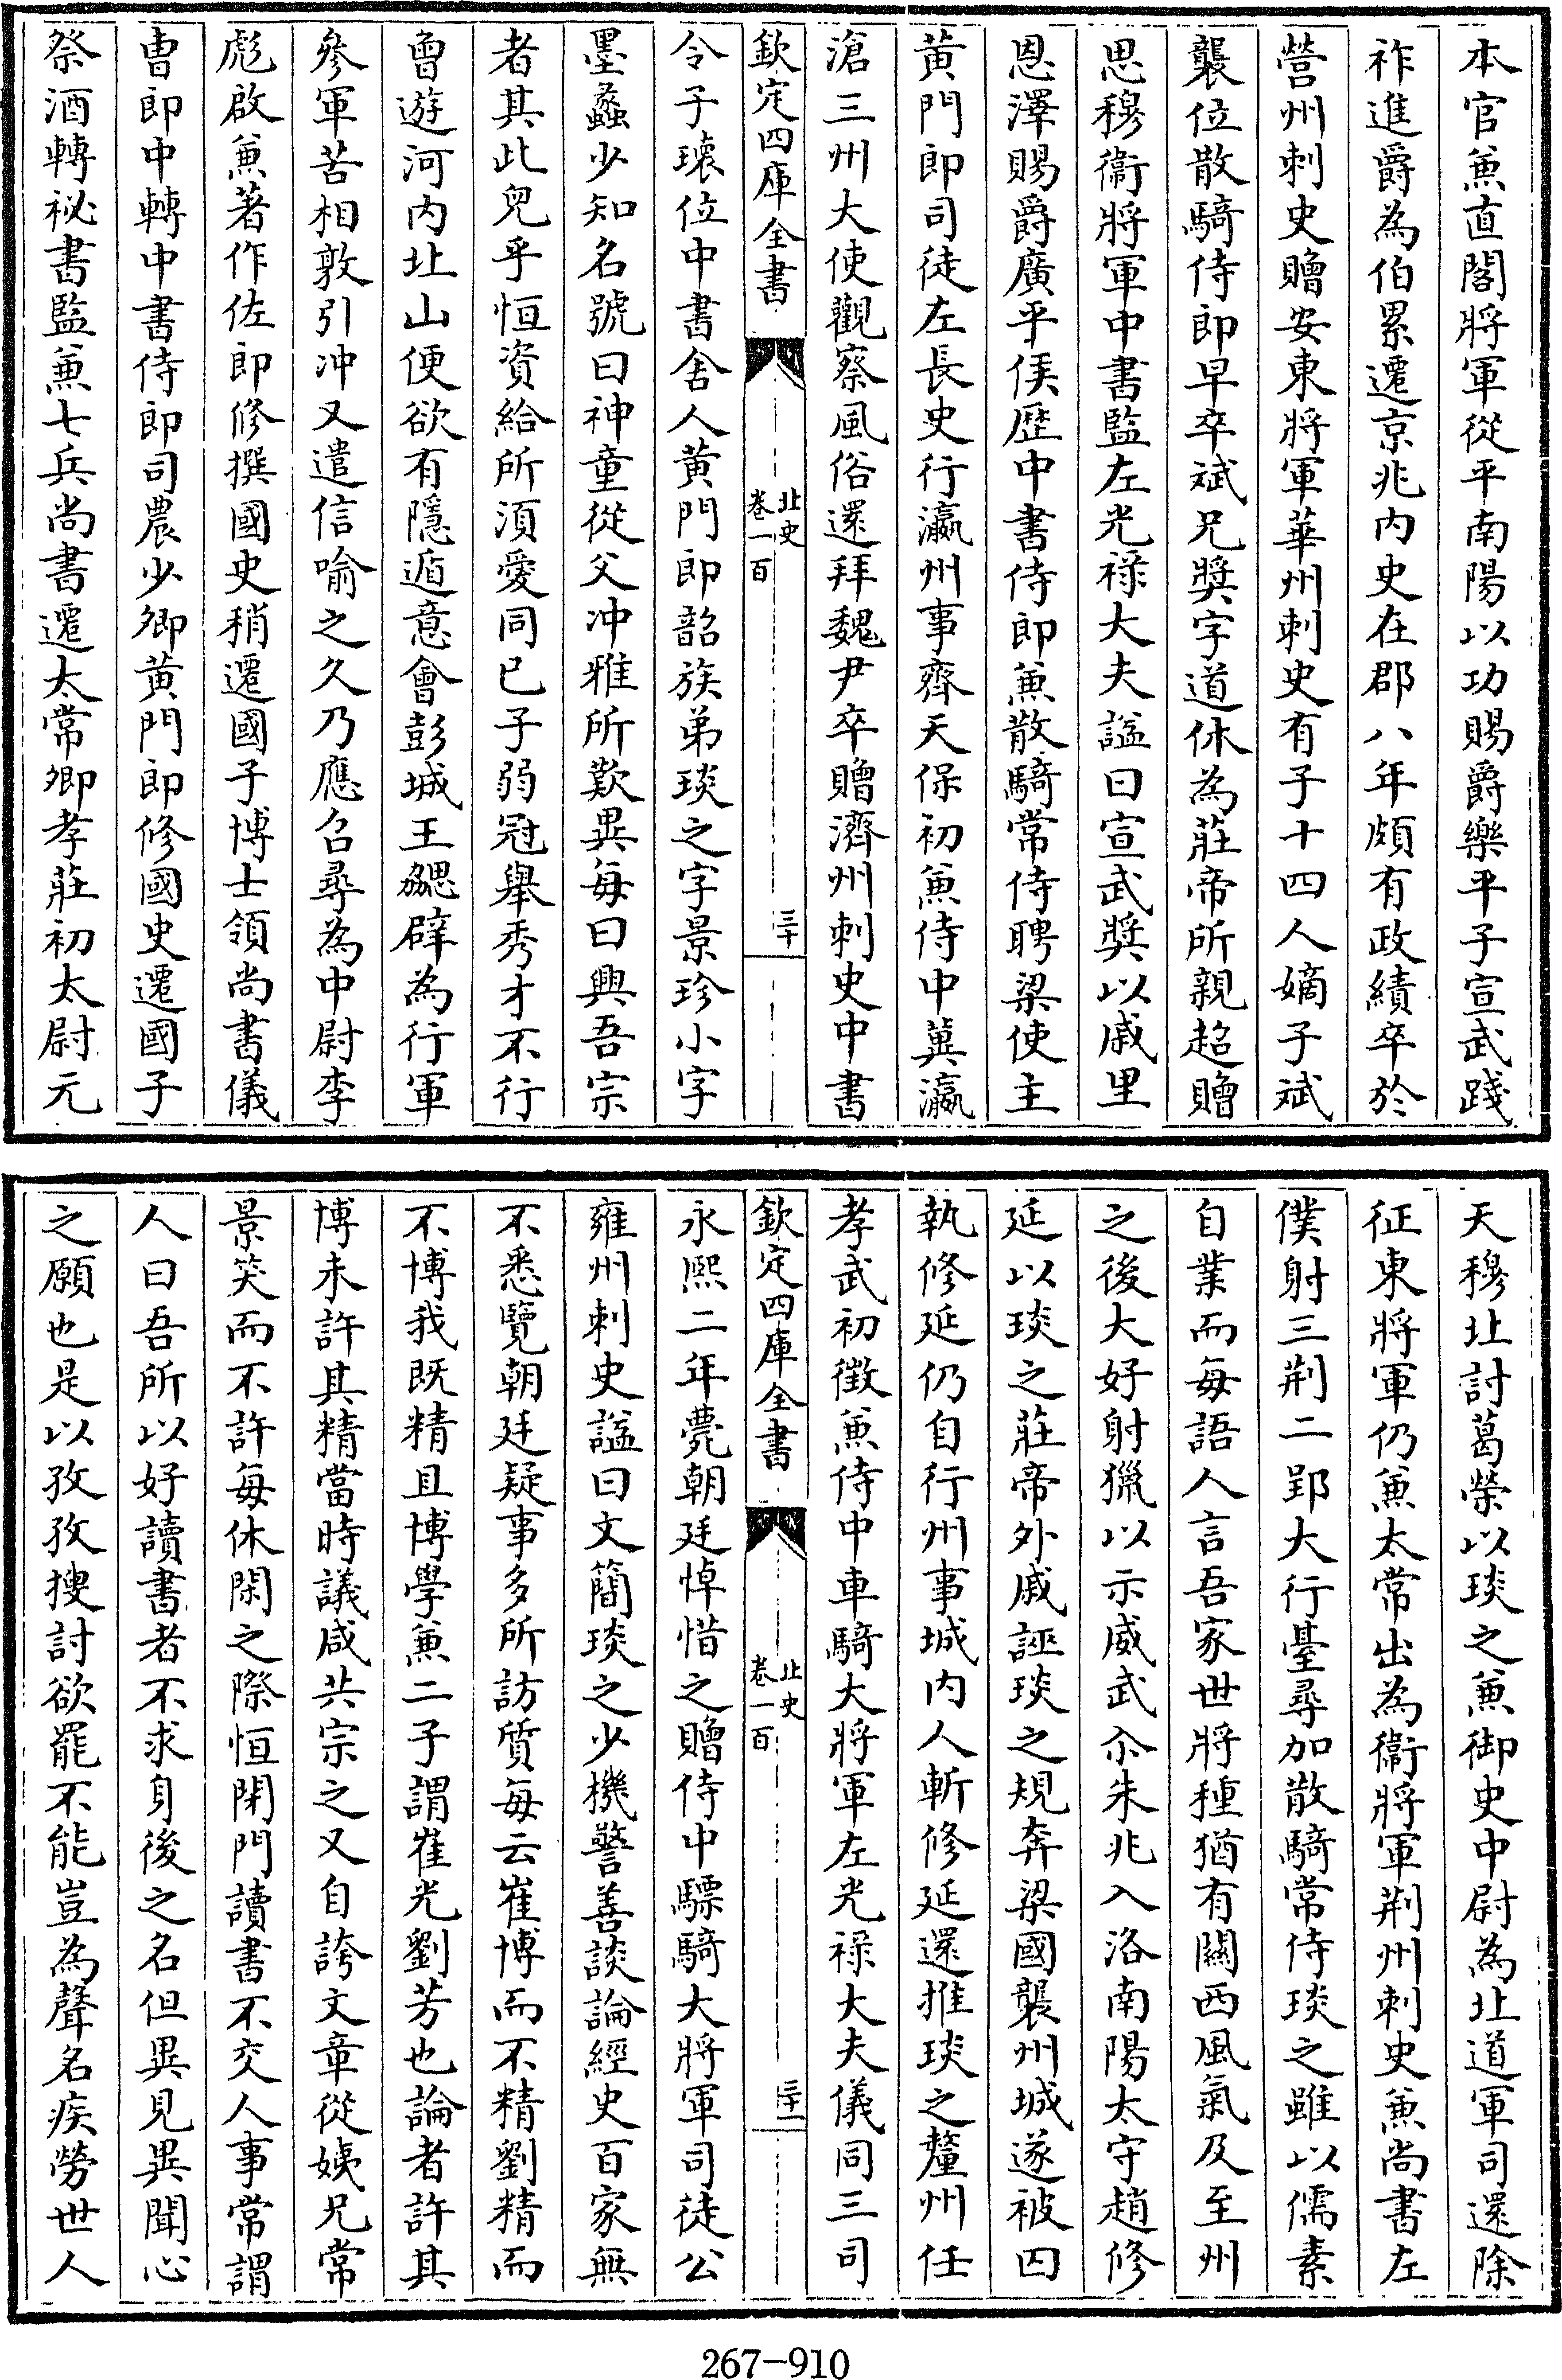 本官兼直閣將軍從平南陽以功賜爵樂平子宣武踐
祚進爵為伯累遷京兆内史在郡八年頗有政績卒於
營州刺史贈安東將軍華州刺史有子十四人嫡子斌
襲位散騎侍郎早卒斌兄奬字道休為莊帝所親超贈
思穆衞將軍中書監左光祿大夫諡曰宣武奬以戚里
恩澤賜爵廣平侯歴中書侍郎兼散騎常侍聘梁使主
黄門郎司徒左長史行瀛州事齊天保初兼侍中冀瀛
滄三州大使觀察風俗還拜魏尹卒贈濟州刺史中書
欽定四庫全書
北史
卷一百
三十
令子瓌位中書舍人黄門郎韶族弟琰之字景珍小字
墨蠡少知名號曰神童從父冲雅所歎異每曰興吾宗
者其此兒乎恒資給所須愛同已子弱冠舉秀才不行
曾遊河内北山便欲有隱遁意會彭城王勰辟為行軍
參軍苦相敦引冲又遣信喻之久乃應召尋為中尉李
彪啟兼著作佐郎修撰國史稍遷國子博士領尚書儀
曹郎中轉中書侍郎司農少卿黄門郎修國史遷國子
祭酒轉祕書監兼七兵尚書遷太常卿孝莊初太尉元
天穆北討葛榮以琰之兼御史中尉為北道軍司還除
征東將軍仍兼太常出為衞將軍荆州刺史兼尚書左
僕射三荆二郢大行臺尋加散騎常侍琰之雖以儒素
自業而每語人言吾家世將種猶有關西風氣及至州
之後大好射獵以示威武尒朱兆入洛南陽太守趙修
延以琰之莊帝外戚誣琰之規奔梁國襲州城遂被囚
執修延仍自行州事城内人斬修延還推琰之釐州任
孝武初徵兼侍中車騎大將軍左光祿大夫儀同三司
欽定四庫全書
北史
卷一百
三十一
永熙二年薨朝廷悼惜之贈侍中驃騎大將軍司徒公
雍州刺史諡曰文簡琰之少機警善談論經史百家無
不悉覽朝廷疑事多所訪質每云崔博而不精劉精而
不博我既精且博學兼二子謂崔光劉芳也論者許其
博未許其精當時議咸共宗之又自誇文章從姨兄常
景笑而不許每休閑之際恒閉門讀書不交人事常謂
人曰吾所以好讀書者不求身後之名但異見異聞心
之願也是以孜孜搜討欲罷不能豈為聲名疾勞世人
267-910